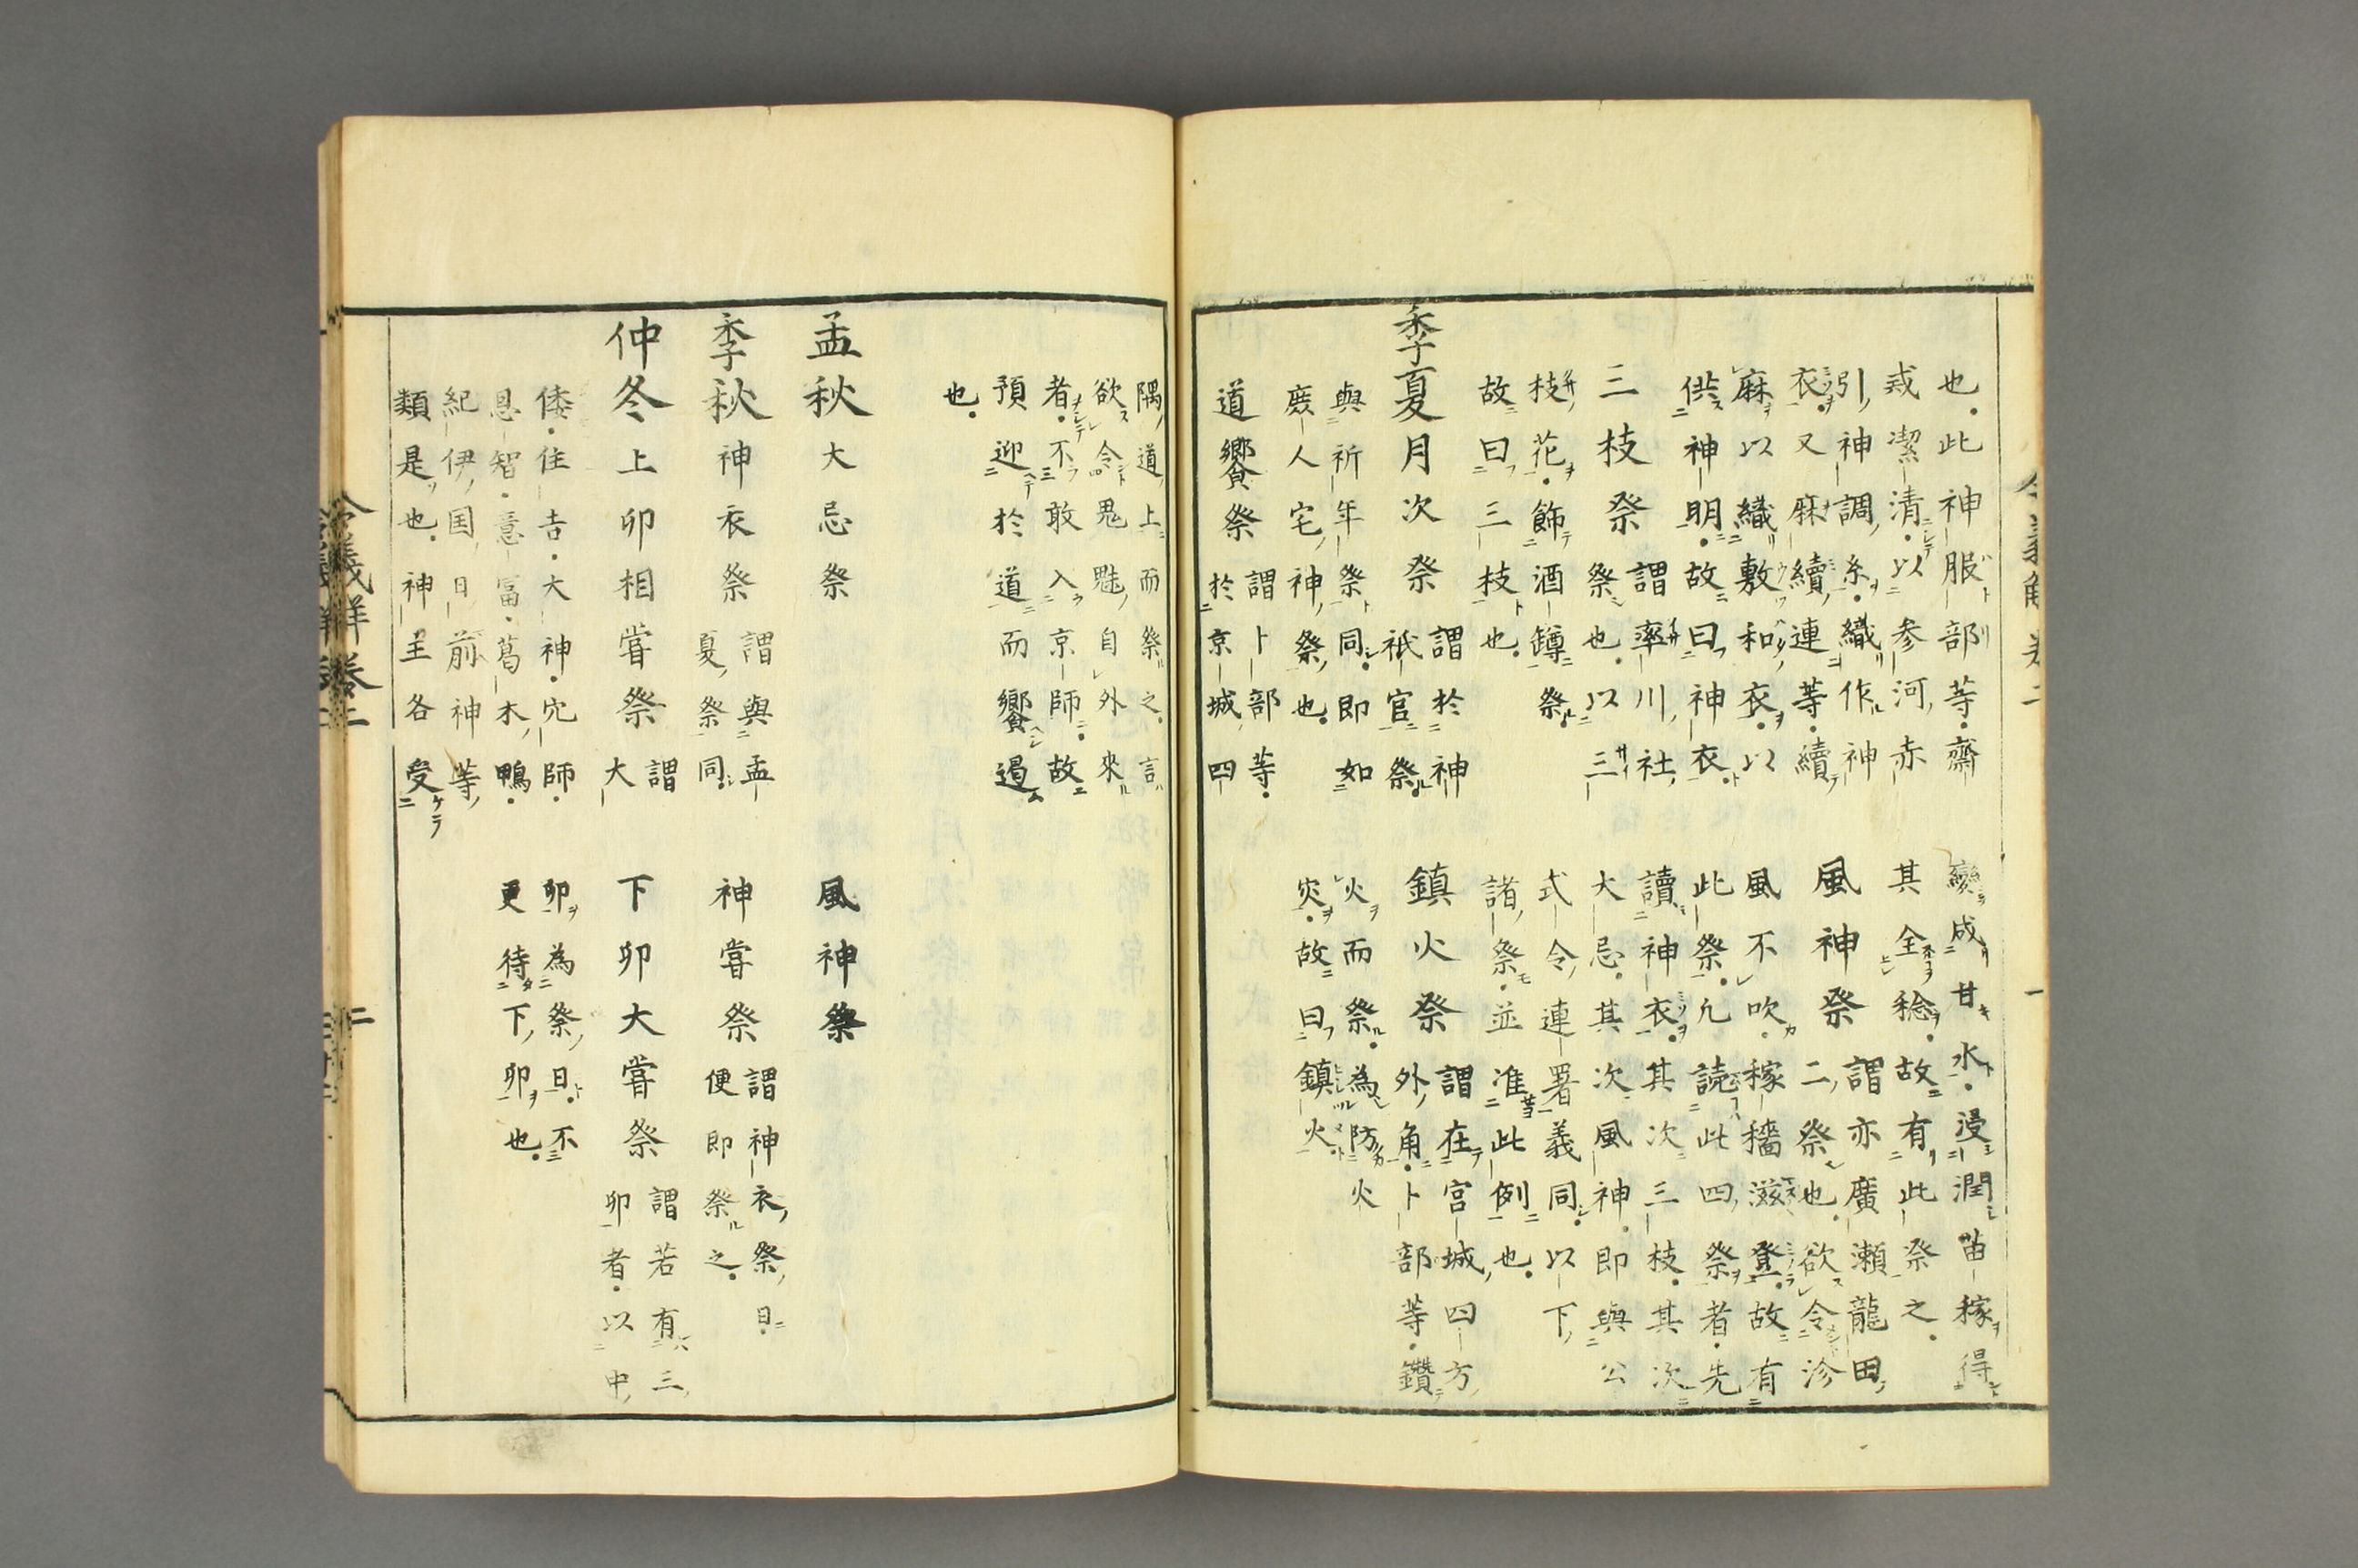 也。此神服部等。齋
戒潔清。以参河赤
引神調糸。織作神
衣。又麻續連等。續
麻以織敷和衣。以
供神明。故曰神衣
三枝祭
謂率川社
祭也。以三
枝花。飾酒罇祭。
故曰三枝也。
季夏月次祭
謂於神
祇官祭。
與祈年祭同。即如
庶人宅神祭也。
道饗祭
謂卜部等。
於京城四
變成甘水。浸潤苗稼得
其全稔。故有此祭之。
風神祭
謂亦廣瀬龍田
二祭也。欲令沴
風不吹。稼穡滋登。故有
此祭。凢読此四祭者。先
讀神衣。其次三枝。其次
大忌。其次風神。即與公
式令連署義同。以下
諸祭。並准此例也。
鎮火祭
謂在宮城四方
外角。卜部等。鑽
火而祭。為防火
灾。故曰鎮火
隅道上而祭之。言
欲令鬼魅自外來
者。不敢入京師。故
預迎於道而饗遏
也。
孟秋大忌祭
季秋神衣祭
謂與孟
夏祭同。
仲冬上卯相嘗祭
謂
大
倭。住吉。大神。穴師。
恩智。意冨。葛木鴨。
紀伊国日前神等
類是也。神主各受
風神祭
神嘗祭
謂神衣祭日。
便即祭之。
下卯大嘗祭
謂若有三
卯者。以中
卯為祭日。不
更待下卯也。
令義解 卷二
二